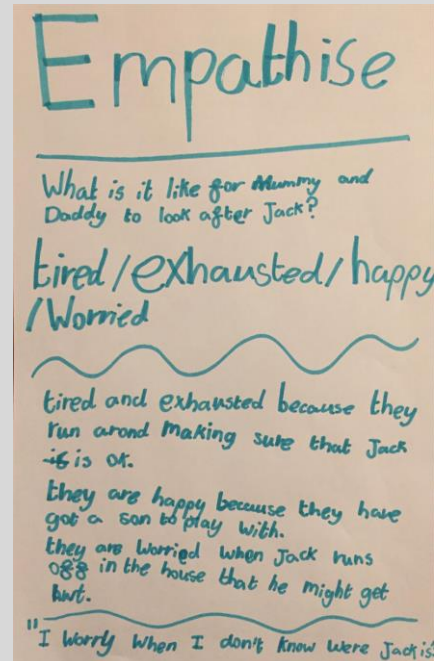 Empathise
What is it like for Mummy and
Daddy to look after Jack?
tired/exhausted/happy
/Worried
tired and exhausted because they
run arond making sure that Jack
is is ok.
they are happy because they have
got a son to play with.
they are worried when Jack runs
off in the house that he might get
hurt.
"I worry when I don't know were Jack is"